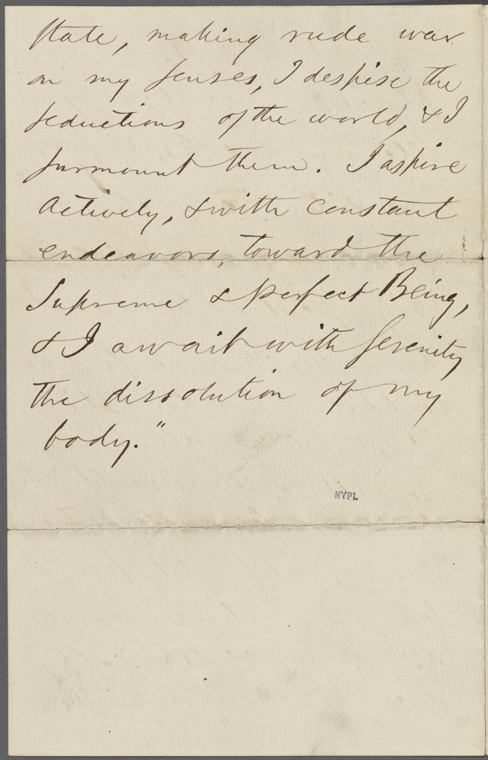 state, making rude war
on my senses, I despise the
seductions of the world, & I
surmount them. I aspire
actively, & with constant
endeavors, toward the
Supreme & perfect Being,
& I await with serenity
the dissolution of my
body."
NYPL